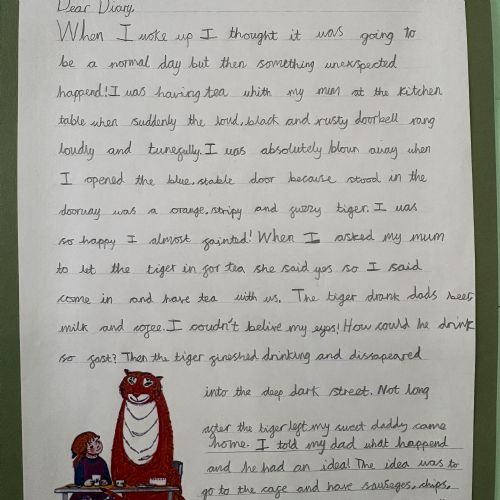 Dear Diary,
When I woke up I thought it was going to
be a normal day but then something unexspected
happend! I was having tea whith my mum at the kitchen
table when suddenly the loud, black and rusty doorbell rang
loudly and tunefully. I was absolutely blown away when
I opened the blue, stable door because stood in the
doorway was a orange, stripy and fuzzy tiger. I was
so happy I almost fainted! When I asked my mum
to let the tiger in for tea she said yes so I said
come in and have tea with us. The tiger drank dads beer,
milk and cofee. I coudn't belive my eyes! How could he drink
so fast? Then the tiger fineshed drinking and dissapeared
into the deep dark street. Not long
after the tiger left my sweet daddy came
home. I told my dad what happend
and he had an idea! The idea was to
go to the cafe and have sausages, chips,